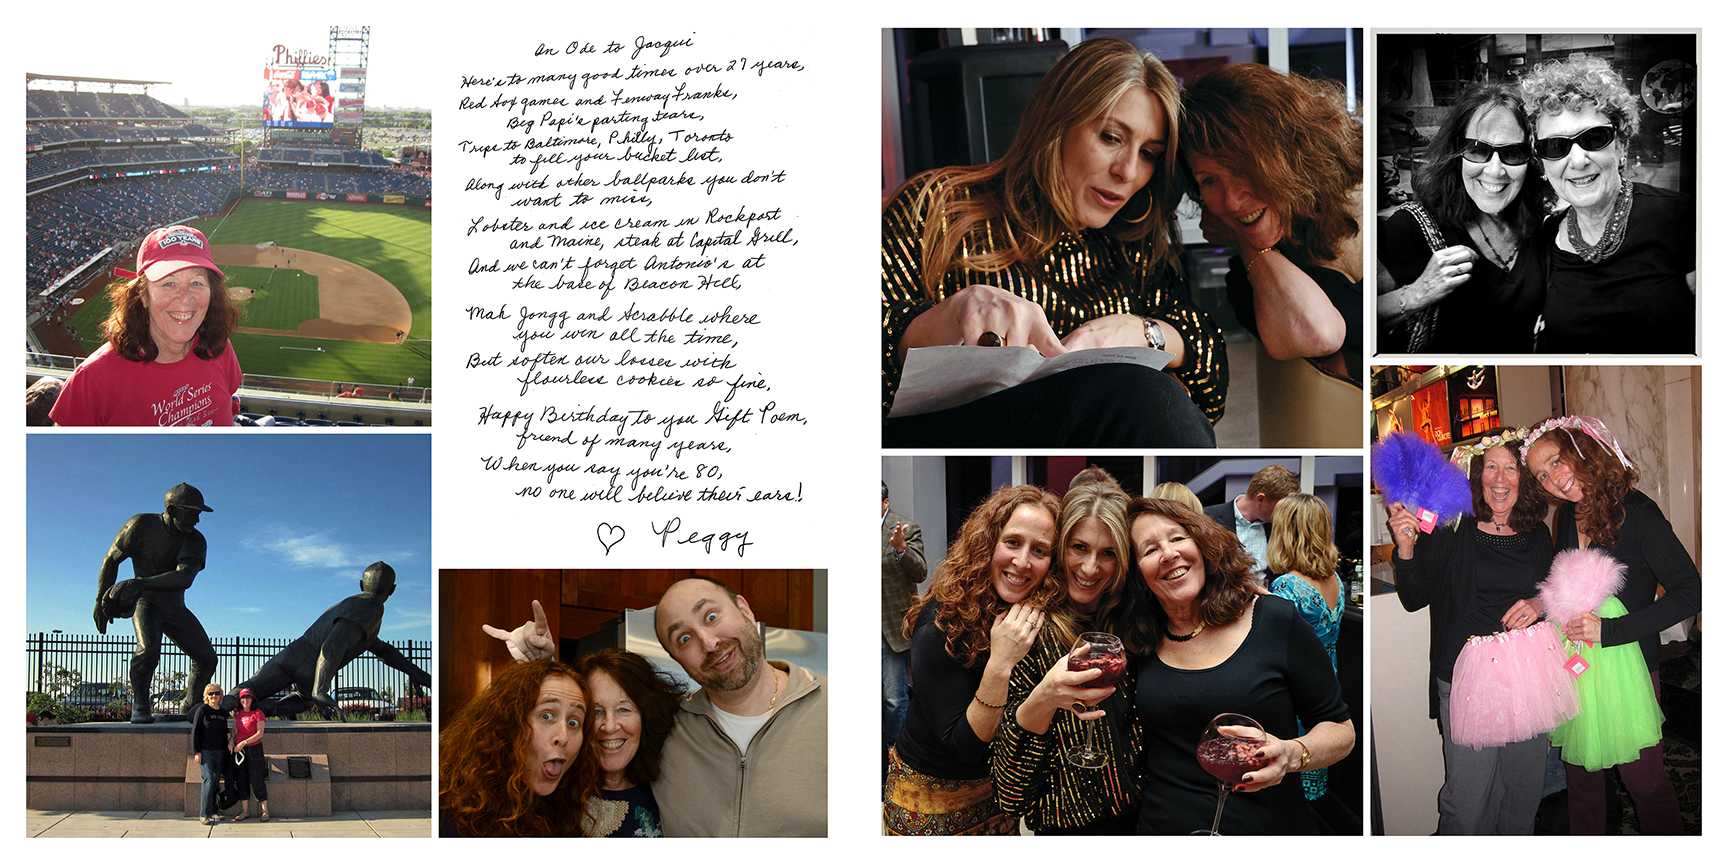 Phillies
Coca-Cola
100 YEARS
World Series
Champions
An Ode to Jacqui
Here's to many good times over 27 years,
Red Sox games and Fenway Franks,
Big Papi's parting tears,
Trips to Baltimore, Philly, Toronto
to fill your bucket list,
Along with other ballparks you don't
want to miss,
Lobster and ice cream in Rockport
and Maine, steak at Capital Grill,
And we can't forget Antonio's at
the base of Beacon Hill,
Mah Jongg and Scrabble where
you win all the time,
But soften our losses with
flourless cookies so fine,
Happy Birthday to you Gift Poem,
friend of many years,
When you say you're 80,
no one will believe their ears!
♡ Peggy